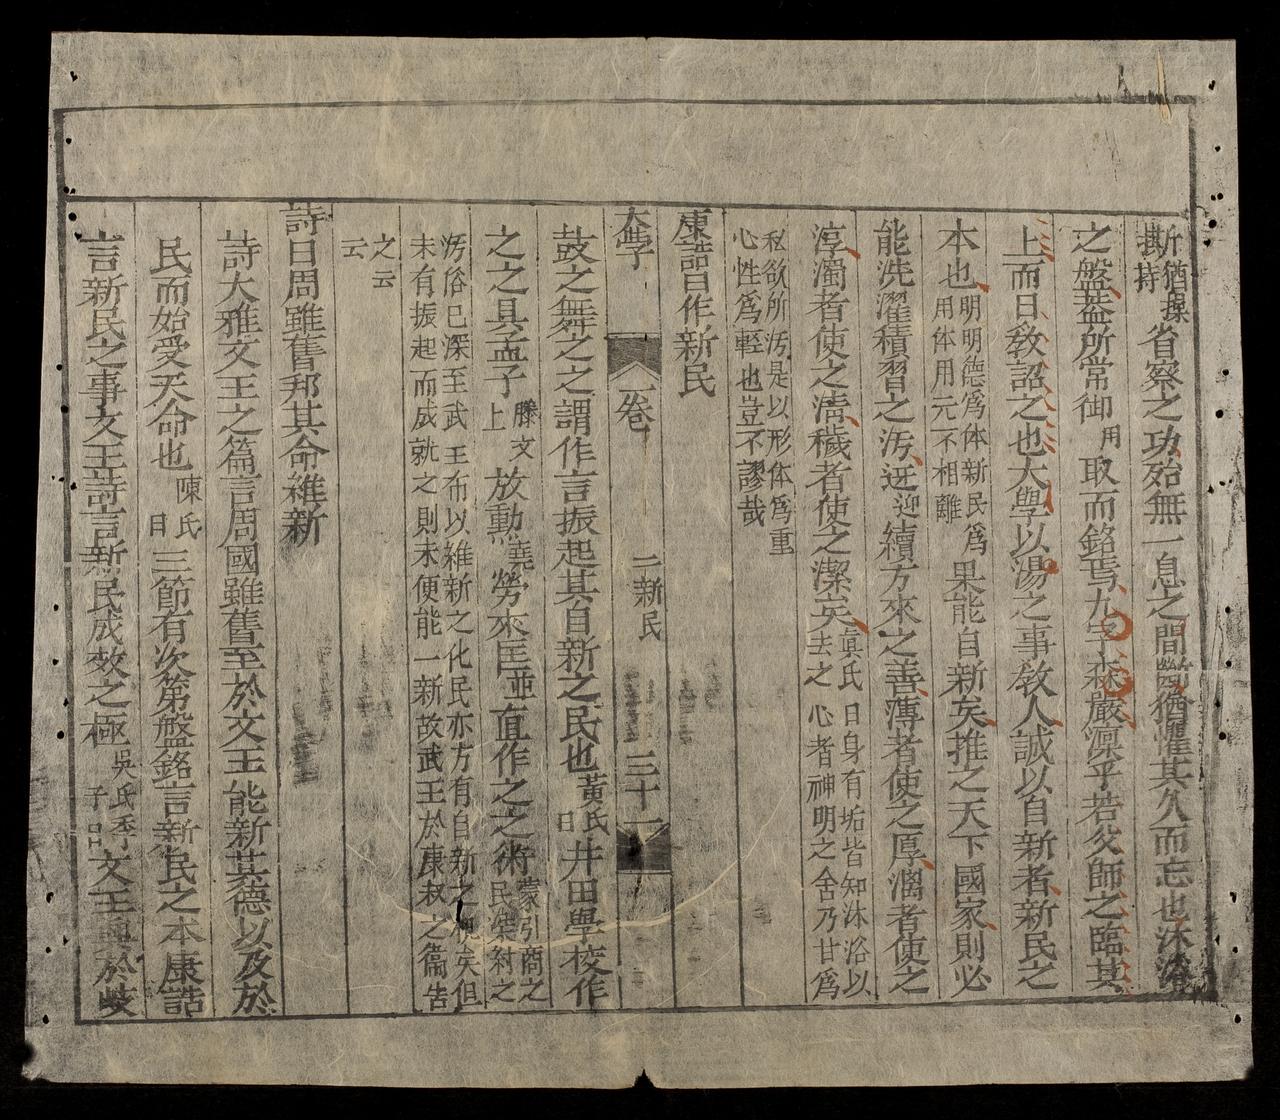 撕猶操持省察之功殆無一息之間斷猶懼其久而忘也沐浴
之盤盖所常御用取而銘焉九字森嚴凜乎若父師之臨其
上而日敎詔之也大學以湯之事敎人誠以自新者新民之
本也明明德爲体新民爲用体用元不相離果能自新矣推之天下國家則必
能洗濯積習之汚迓迎續方來之善薄者使之厚漓者使之
淳濁者使之淸穢者使之潔矣眞氏曰身有垢皆知沐浴以去之心者神明之舍乃甘爲
私欲所汚是以形体爲重心性爲輕也豈不謬哉
康誥曰作新民
大學 卷一 二新民 三十一
鼓之舞之之謂作言振起其自新之民也黃氏曰井田學校作
之之具孟子滕文上放勳堯勞來匡並直作之之術蒙引商之民染紂之
汚俗已深至武王布以維新之化民亦方有自新之機矣但未有振起而成就之則未便能一新故武王於康叔之衞告
之云云
詩曰周雖舊邦其命維新
詩大雅文王之篇言周國雖舊至於文王能新其德以及於
民而始受天命也陳氏曰三節有次第盤銘言新民之本康誥
言新民之事文王詩言新民成效之極吳氏季子曰文王興於岐